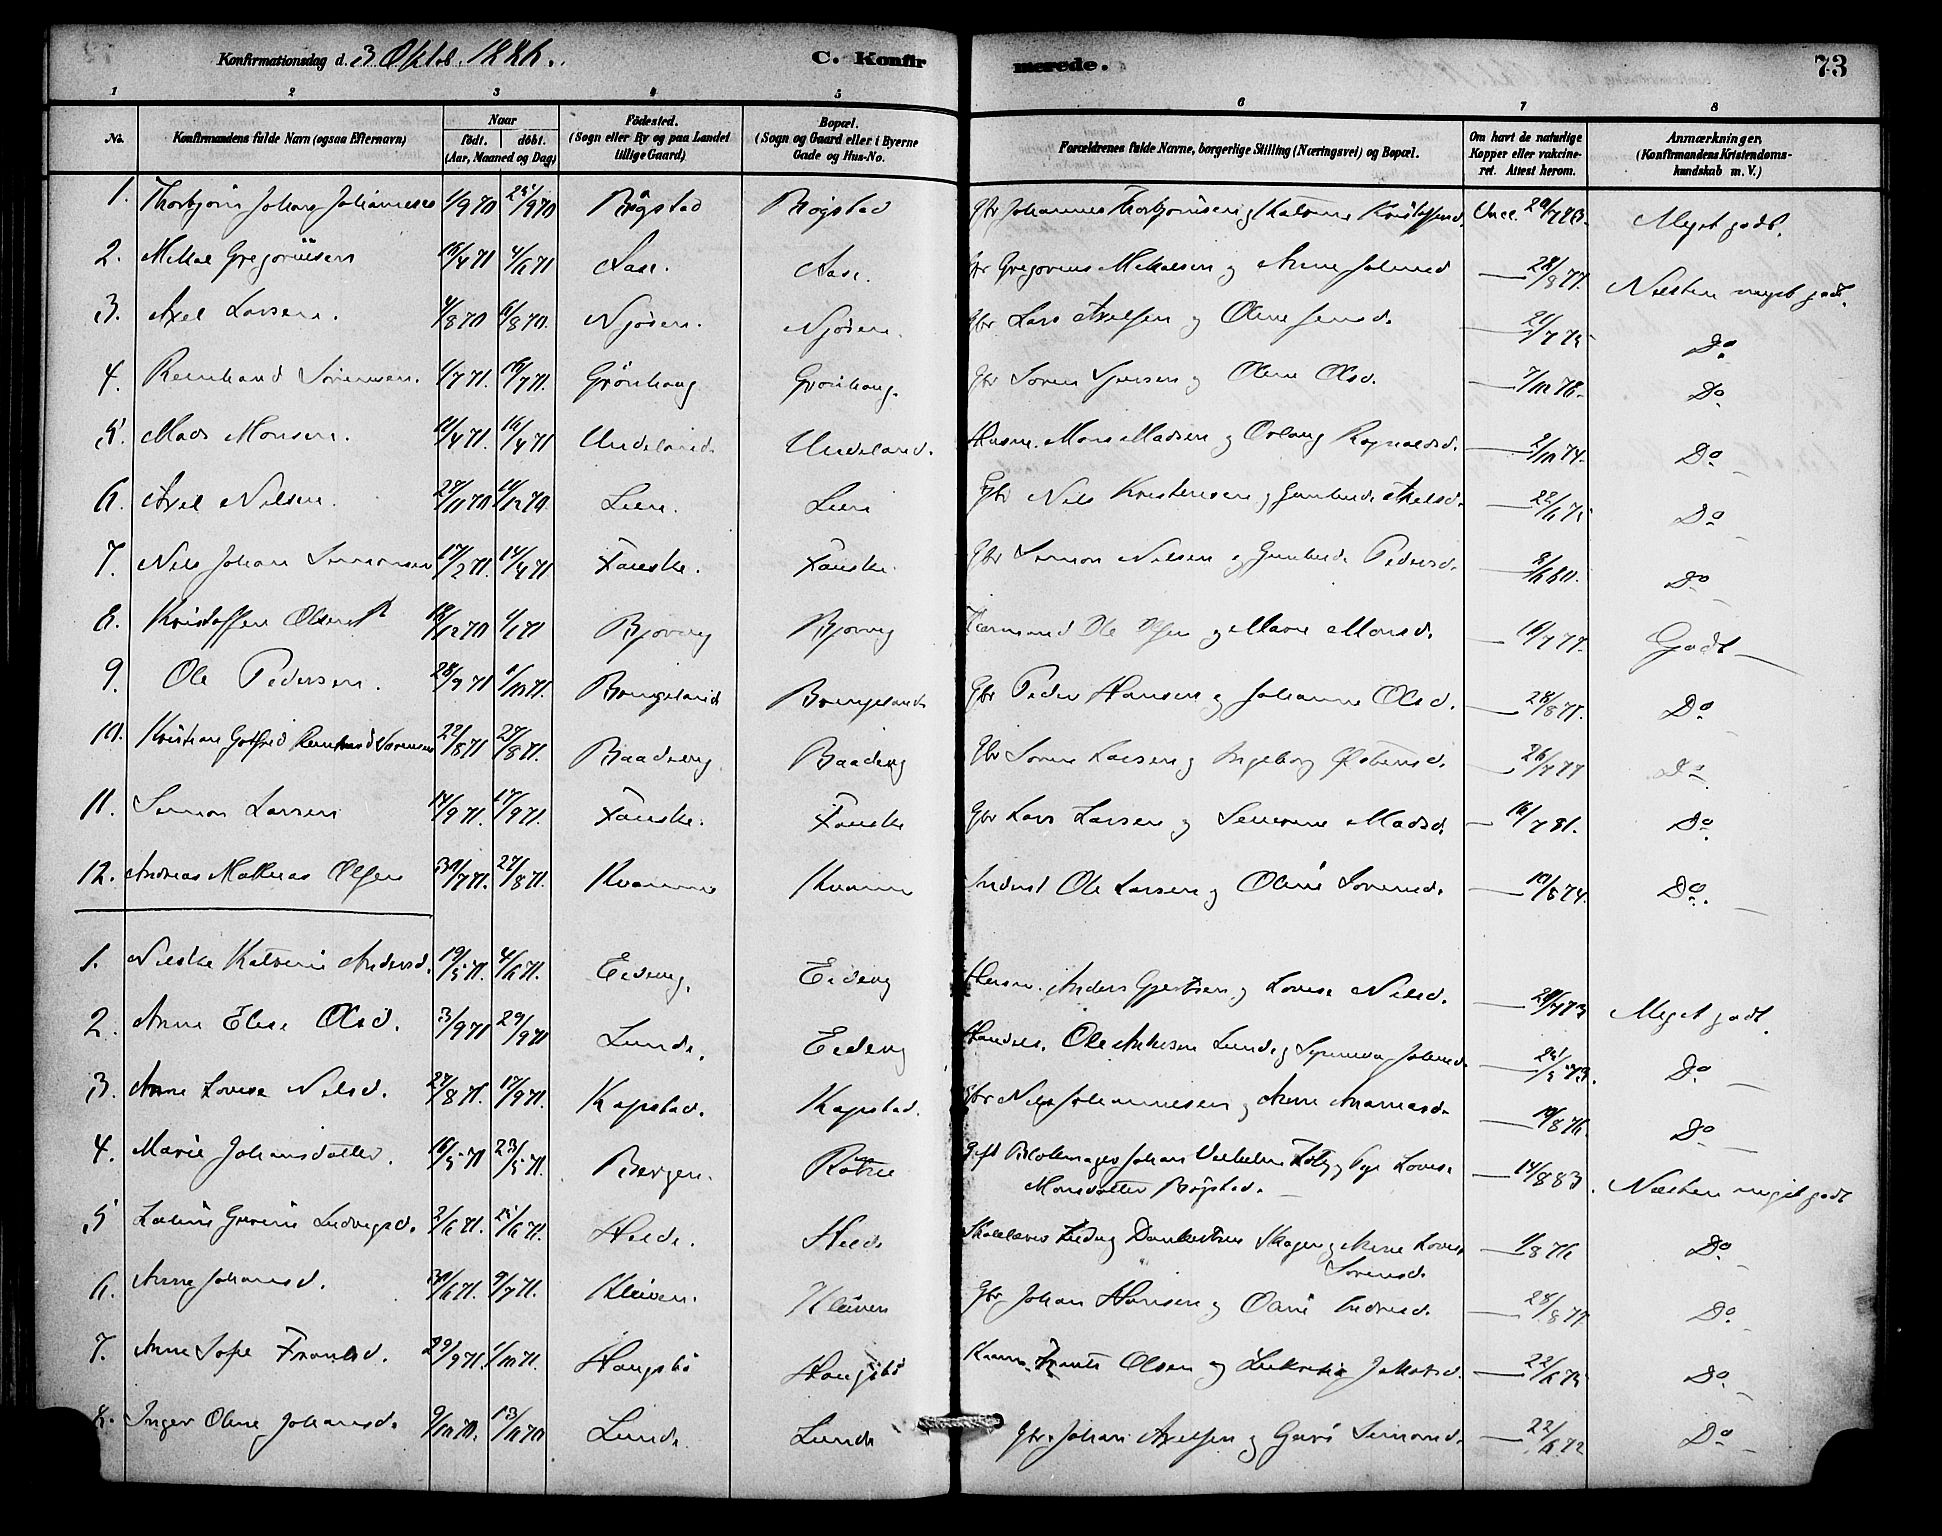 Konfirmationsdag d. 3 Oktob. 1886. C. Konfirmerede. 73
1 2 3 4 5 6 7 8
No. Konfirmandens fulde Navn (ogsaa Efternavn) Naar født. døbt. (Aar, Maaned og Dag) Fødested. (Sogn eller By og paa Landet tillige Gaard) Bopæl. (Sogn og Gaard eller i Byerne Gade og Hus-No. Forældrenes fulde Navne, borgerlige Stilling (Næringsvei) og Bopæl. Om havt de naturlige Kopper eller vakcineret. Attest herom. Anmærkninger, (Konfirmandens Kristendomskundskab m. V.)
1. Thorbjørn Johan Johannesen 1/9 70 25/9 70 Bøgstad Bøgstad Gbr Johannes Thorbjørnsen og Katrine Kristoffersd. Vacc. Meget godt.
2. Mikal Gregoriusen 4/6 71 Aase. Aase. Gbr Gregorius Mikalsen og Anne Johnsd 28/8 77. Næsten meget godt.
3. Axel Larsen. 4/8 70 Njøsen. Njøsen. Gbr Lars Axelsen og Oline Jensd. Do.
4. Reinhard Sørensen. 1/7 71. 16/7 71. Grønhaug Grønhaug. Gbr Søren Olsd. 7/10 78. Do
5. Mads Monsen. 10/4 71. 16/4 71 Undeland. Undeland. Husm. Mons Madsen og Ragnaldsd. 2/10 74. Do
6. Axel Nilsen. 27/11 70 Lien. Lien Gbr Nils Kristensen og Gunhilde Axelsd. 22/6 75 Do
7. Nils Johan Simonsen 17/2 71. 14/4 71 Fauske. Fauske. Gbr Simon Nilsen og Gunhilde Pedersd. Do
8. Kristoffer Olsen 18/12 70 1/1 71 Bjørvog Bjørvog Ole Olsen og Marie Monsd. 10/7 77. Godt
9. Ole Pedersen. 28/9 71 1/10 71. Bringeland Bringeland Gbr Peder Hansen og Johanne Olsd. 28/8 75. Do
10. Kristian Gotfrid Reinhard Sørensen 22/8 71 27/8 71. Baadeng Baadeng Gbr Søren Larsen og Ingeborg 26/7 77 Do
11. Simon Larsen 14/9 71. 17/9 71. Fauske. Fauske Gbr Lars Larsen og Severine Madsd. 16/7 81. Do
12. Andreas Mathias Olsen 30/7 71. 27/8 71. Kvamme Kvamme Inderst Ole Larsen og Oline Sørensd. 10/8 74. Do.
1. Nilske Katrine Andersd. 19/5 71. 4/6 71. Eideng. Eideng Husm. Anders Gjertsen og Lovise Nilsd. Meget godt.
2. Anne Elise Olsd. 3/9 71 29/9 71 Lunde. Eideng Handels. Ole Lunde og Johnsd. Do
3. Anne Lovise Nilsd. 27/8 71. 17/9 71. Kapstad. Kapstad. Gbr Nils Johannesen og Anne Andreasd. 19/8 76. Do
4. Marie Johansdatter. 16/5 71 23/5 71. Bergen. Gift Johan Vilhelm og Lovise Monsdatter Bøgstad. 14/8 83. Næsten meget godt
5 Ludvigsd. 2/6 71. 25/6 71. Helde. Helde Skolelærer Ludvig Skagen og Anne Lovise Sørensd. 1/8 76 Do
6. Anne Johansd. 30/6 71. 9/7 71. Kleiven. Kleiven Gbr Johan Hansen og Oline Andresd. 28/8 77 Do
7. Anne Sofie Frantsd. 29/9 71. 1/10 71. Haugsbø Haugsbø Frants Olsen og Lukretia Jakobsd. 22/6 75 Do
8. Inger Oline Johansd. 9/10 70. 13/11 70 Lunde. Lunde Gbr. Johan Axelsen og Simonsd. 22/6 72 Do